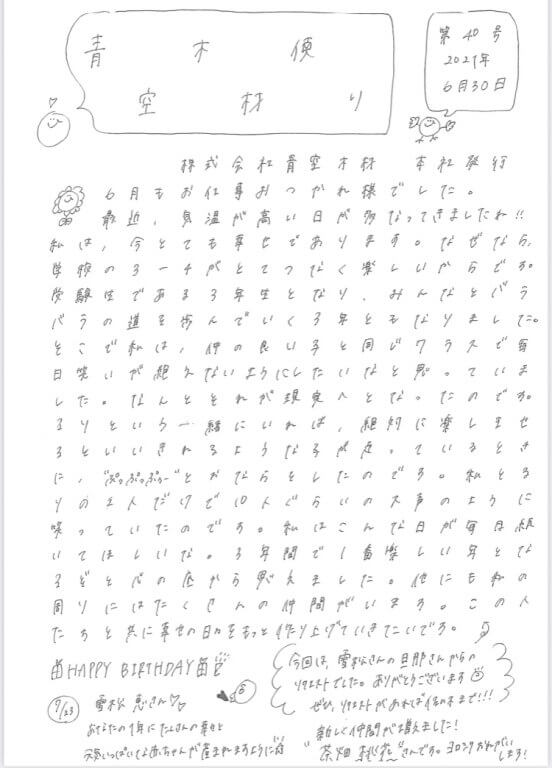 青木便
空材り
第40号
2021年
6月30日
株式会社青空木材 本社発行
6月もお仕事おつかれ様でした。
最近、気温が高い日が多なってきましたね!!
私は、今とても幸せであります。なぜなら、
学校の3-4がとてつなく楽しいからです。
受験生である3年生となり、みんなとバラ
バラの道を歩んでいく3年ともなりました。
そこで私は、仲の良い子と同じクラスで毎
日笑いが絶えないようにしたいなと思っていま
した。なんとそれが現実へとなったのです。
るりという一緒にいれば、絶対に楽しませ
るといいきれるような子が走っているとき
に、"ぷっぷっぷぅ~"とおならをしたのです。私とる
りの2人だけで10人ぐらいの大声のように
笑っていたのです。私はこんな日が毎日続
いてほしいな。3年間で1番楽しい年とな
るぞと心の底から思えました。他にも私の
周りにはたくさんの仲間がいます。この人
たちと共に幸せの日々をもっと作り上げていきたいです。
HAPPY BIRTHDAY
9/23 雪松 恵さん♡
あらたの1年にたくさんの幸せと
元気いっぱいな赤ちゃんが産まれますように
今回は、雪松さんの旦那さんからの
リクエストでした。ありがとうございます
ぜひ、リクエストがあれば佑の木まで!!!
新しく仲間が増えました!
"茶畑 桃花"さんです。ヨロシクおねがい
します!